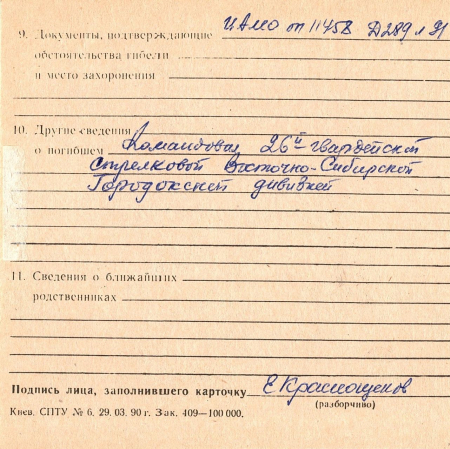 9. Документы, подтверждающие ЦАМО оп 11458 Д289 л 31
обстоятельства гибели
и место захоронения
10. Другие сведения
о погибшем Командовал 26й гвардейской
стрелковой Восточно-Сибирской
Городокской дивизией
11. Сведения о ближайших
родственниках
Подпись лица, заполнившего карточку Е Краснощеков
(разборчиво)
Киев. СПТУ № 6. 29. 03. 90 г. Зак. 409—100 000.